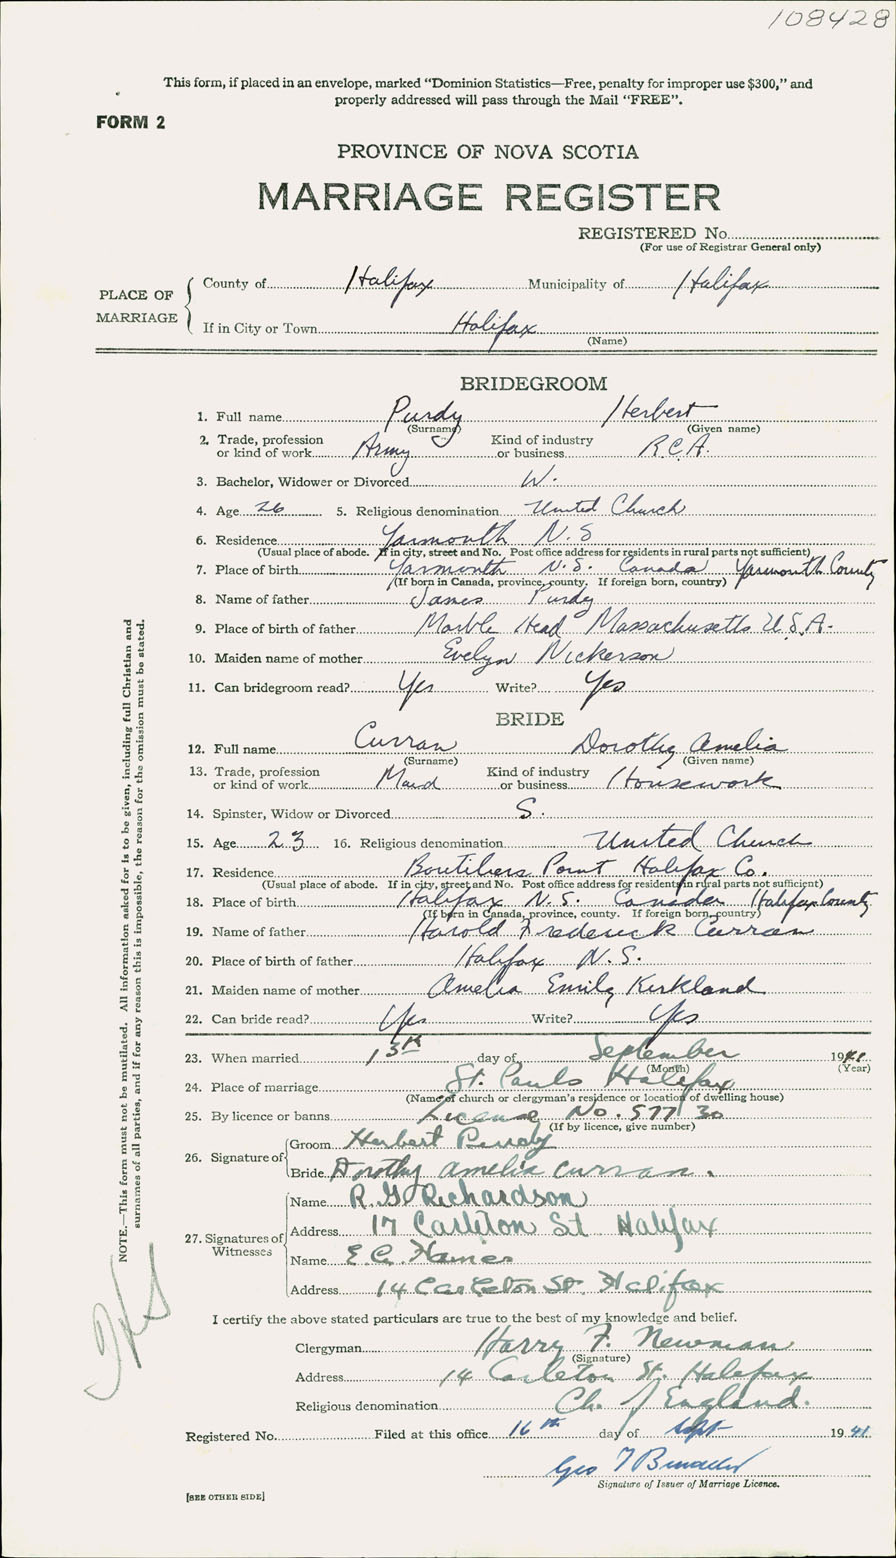 108428
This form, if placed in an envelope, marked “Dominion Statistics—Free, penalty for improper use $300,” and
properly addressed will pass through the Mail “FREE”.
FORM 2
PROVINCE OF NOVA SCOTIA
MARRIAGE REGISTER
REGISTERED No.
(For use of Registrar General only)
PLACE OF MARRIAGE
County of Halifax Municipality of Halifax
If in City or Town Halifax
(Name)
BRIDEGROOM
1. Full name Purdy Herbert
(Surname) (Given name)
2. Trade, profession or kind of work Army Kind of industry or business R.C.A.
3. Bachelor, Widower or Divorced W.
4. Age 26 5. Religious denomination United Church
6. Residence Yarmouth N.S
(Usual place of abode. If in city, street and No. Post office address for residents in rural parts not sufficient)
7. Place of birth Yarmouth N.S. Canada Yarmouth County
(If born in Canada, province, county. If foreign born, country)
8. Name of father James Purdy
9. Place of birth of father Marble Head Massachusetts U.S.A.
10. Maiden name of mother Evelyn Nickerson
11. Can bridegroom read? Yes Write? Yes
BRIDE
12. Full name Curran Dorothy Amelia
(Surname) (Given name)
13. Trade, profession or kind of work Maid Kind of industry or business Housework
14. Spinster, Widow or Divorced S.
15. Age 23 16. Religious denomination United Church
17. Residence Boutiliers Point Halifax Co.
(Usual place of abode. If in city, street and No. Post office address for residents in rural parts not sufficient)
18. Place of birth Halifax N.S. Canada Halifax County
(If born in Canada, province, county. If foreign born, country)
19. Name of father Harold Frederick Curran
20. Place of birth of father Halifax N.S.
21. Maiden name of mother Amelia Emily Kirkland
22. Can bride read? Yes Write? Yes
23. When married 13th day of September 1941
(Month) (Year)
24. Place of marriage St. Pauls Halifax
(Name of church or clergyman's residence or location of dwelling house)
25. By licence or banns License No. 57730
(If by licence, give number)
26. Signature of
Groom Herbert Purdy
Bride Dorothy Amelia Curran.
27. Signatures of Witnesses
Name R. G. Richardson
Address 17 Carleton St Halifax
Name E. C.
Address 14 Carleton St. Halifax
I certify the above stated particulars are true to the best of my knowledge and belief.
Clergyman Harry F. Newman
(Signature)
Address 14 Carleton St. Halifax
Religious denomination Ch. of England.
Registered No. Filed at this office 16th day of Sept 1941
Geo
Signature of Issuer of Marriage Licence.
[SEE OTHER SIDE]
NOTE.—This form must not be mutilated. All information asked for is to be given, including full Christian and
surnames of all parties, and if for any reason this is impossible, the reason for the omission must be stated.